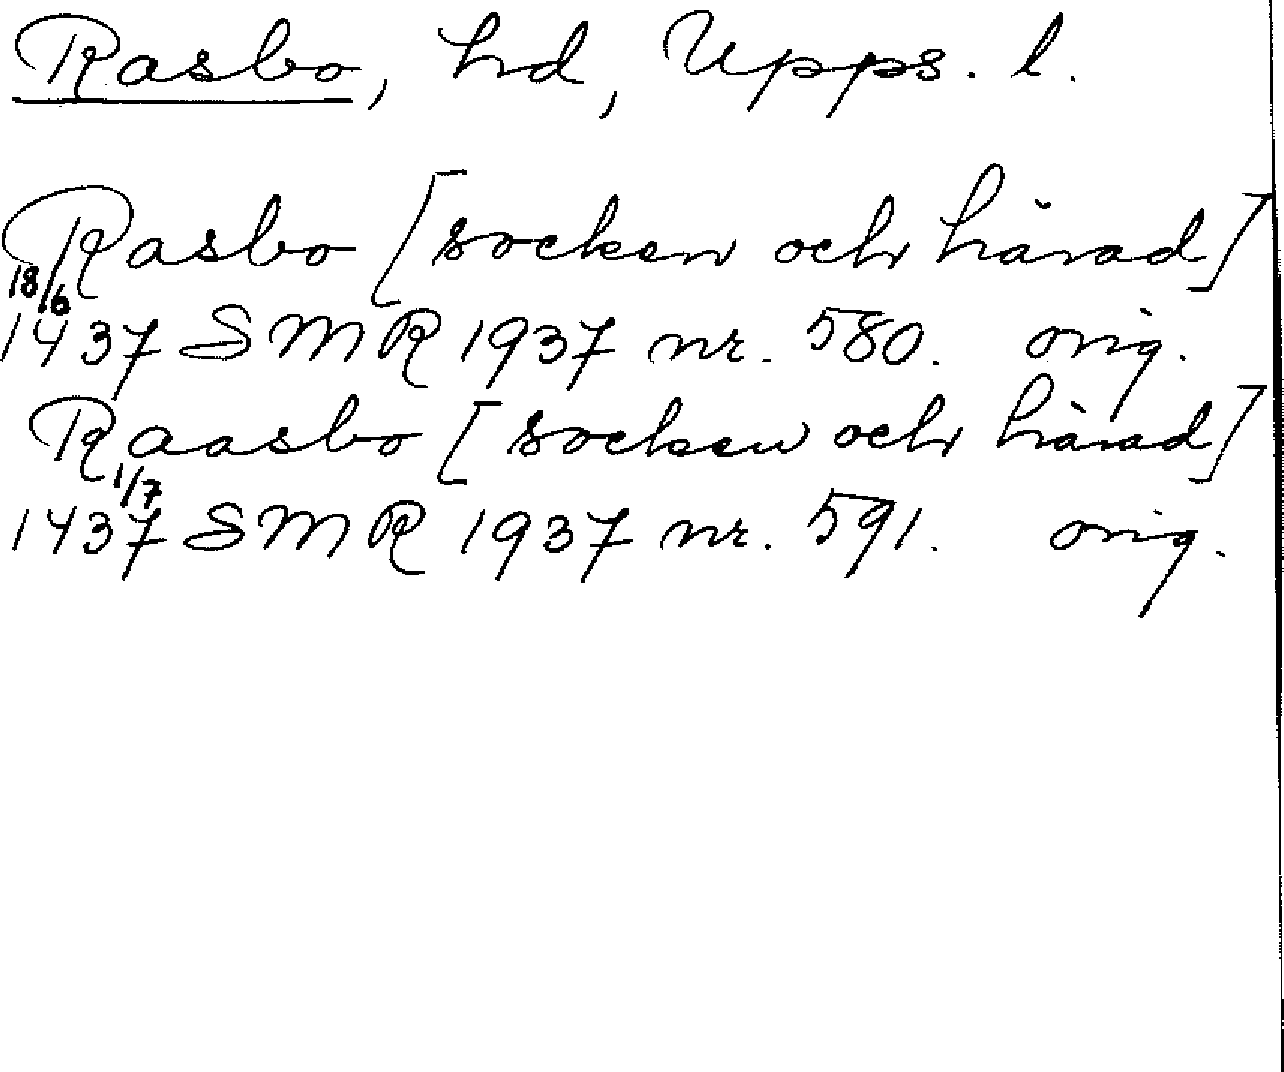 Rasbo, hd, Upps. l.
Rasbo [socken och härad]
18/6
1437 SMR 1937 nr. 580. orig.
Raasbo [socken och härad]
1/7
1437 SMR 1937 nr. 591. orig.